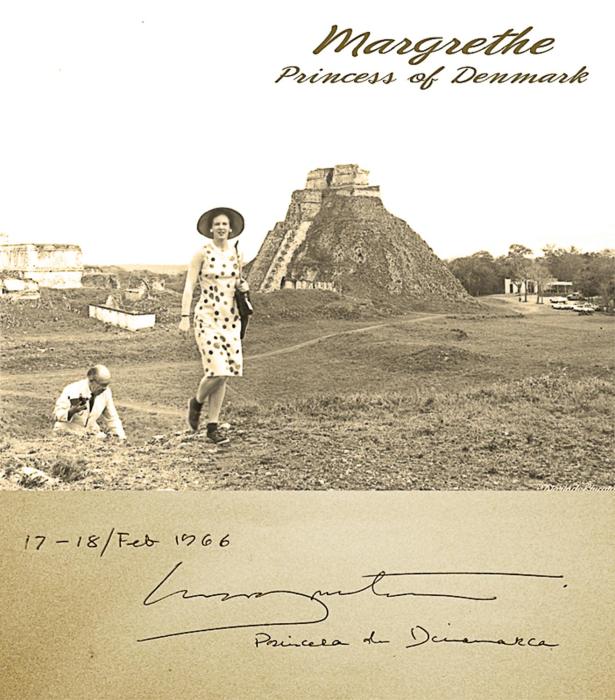 Margrethe
Princess of Denmark
17-18/Feb 1966
Margrethe
Princesa de Dinamarca